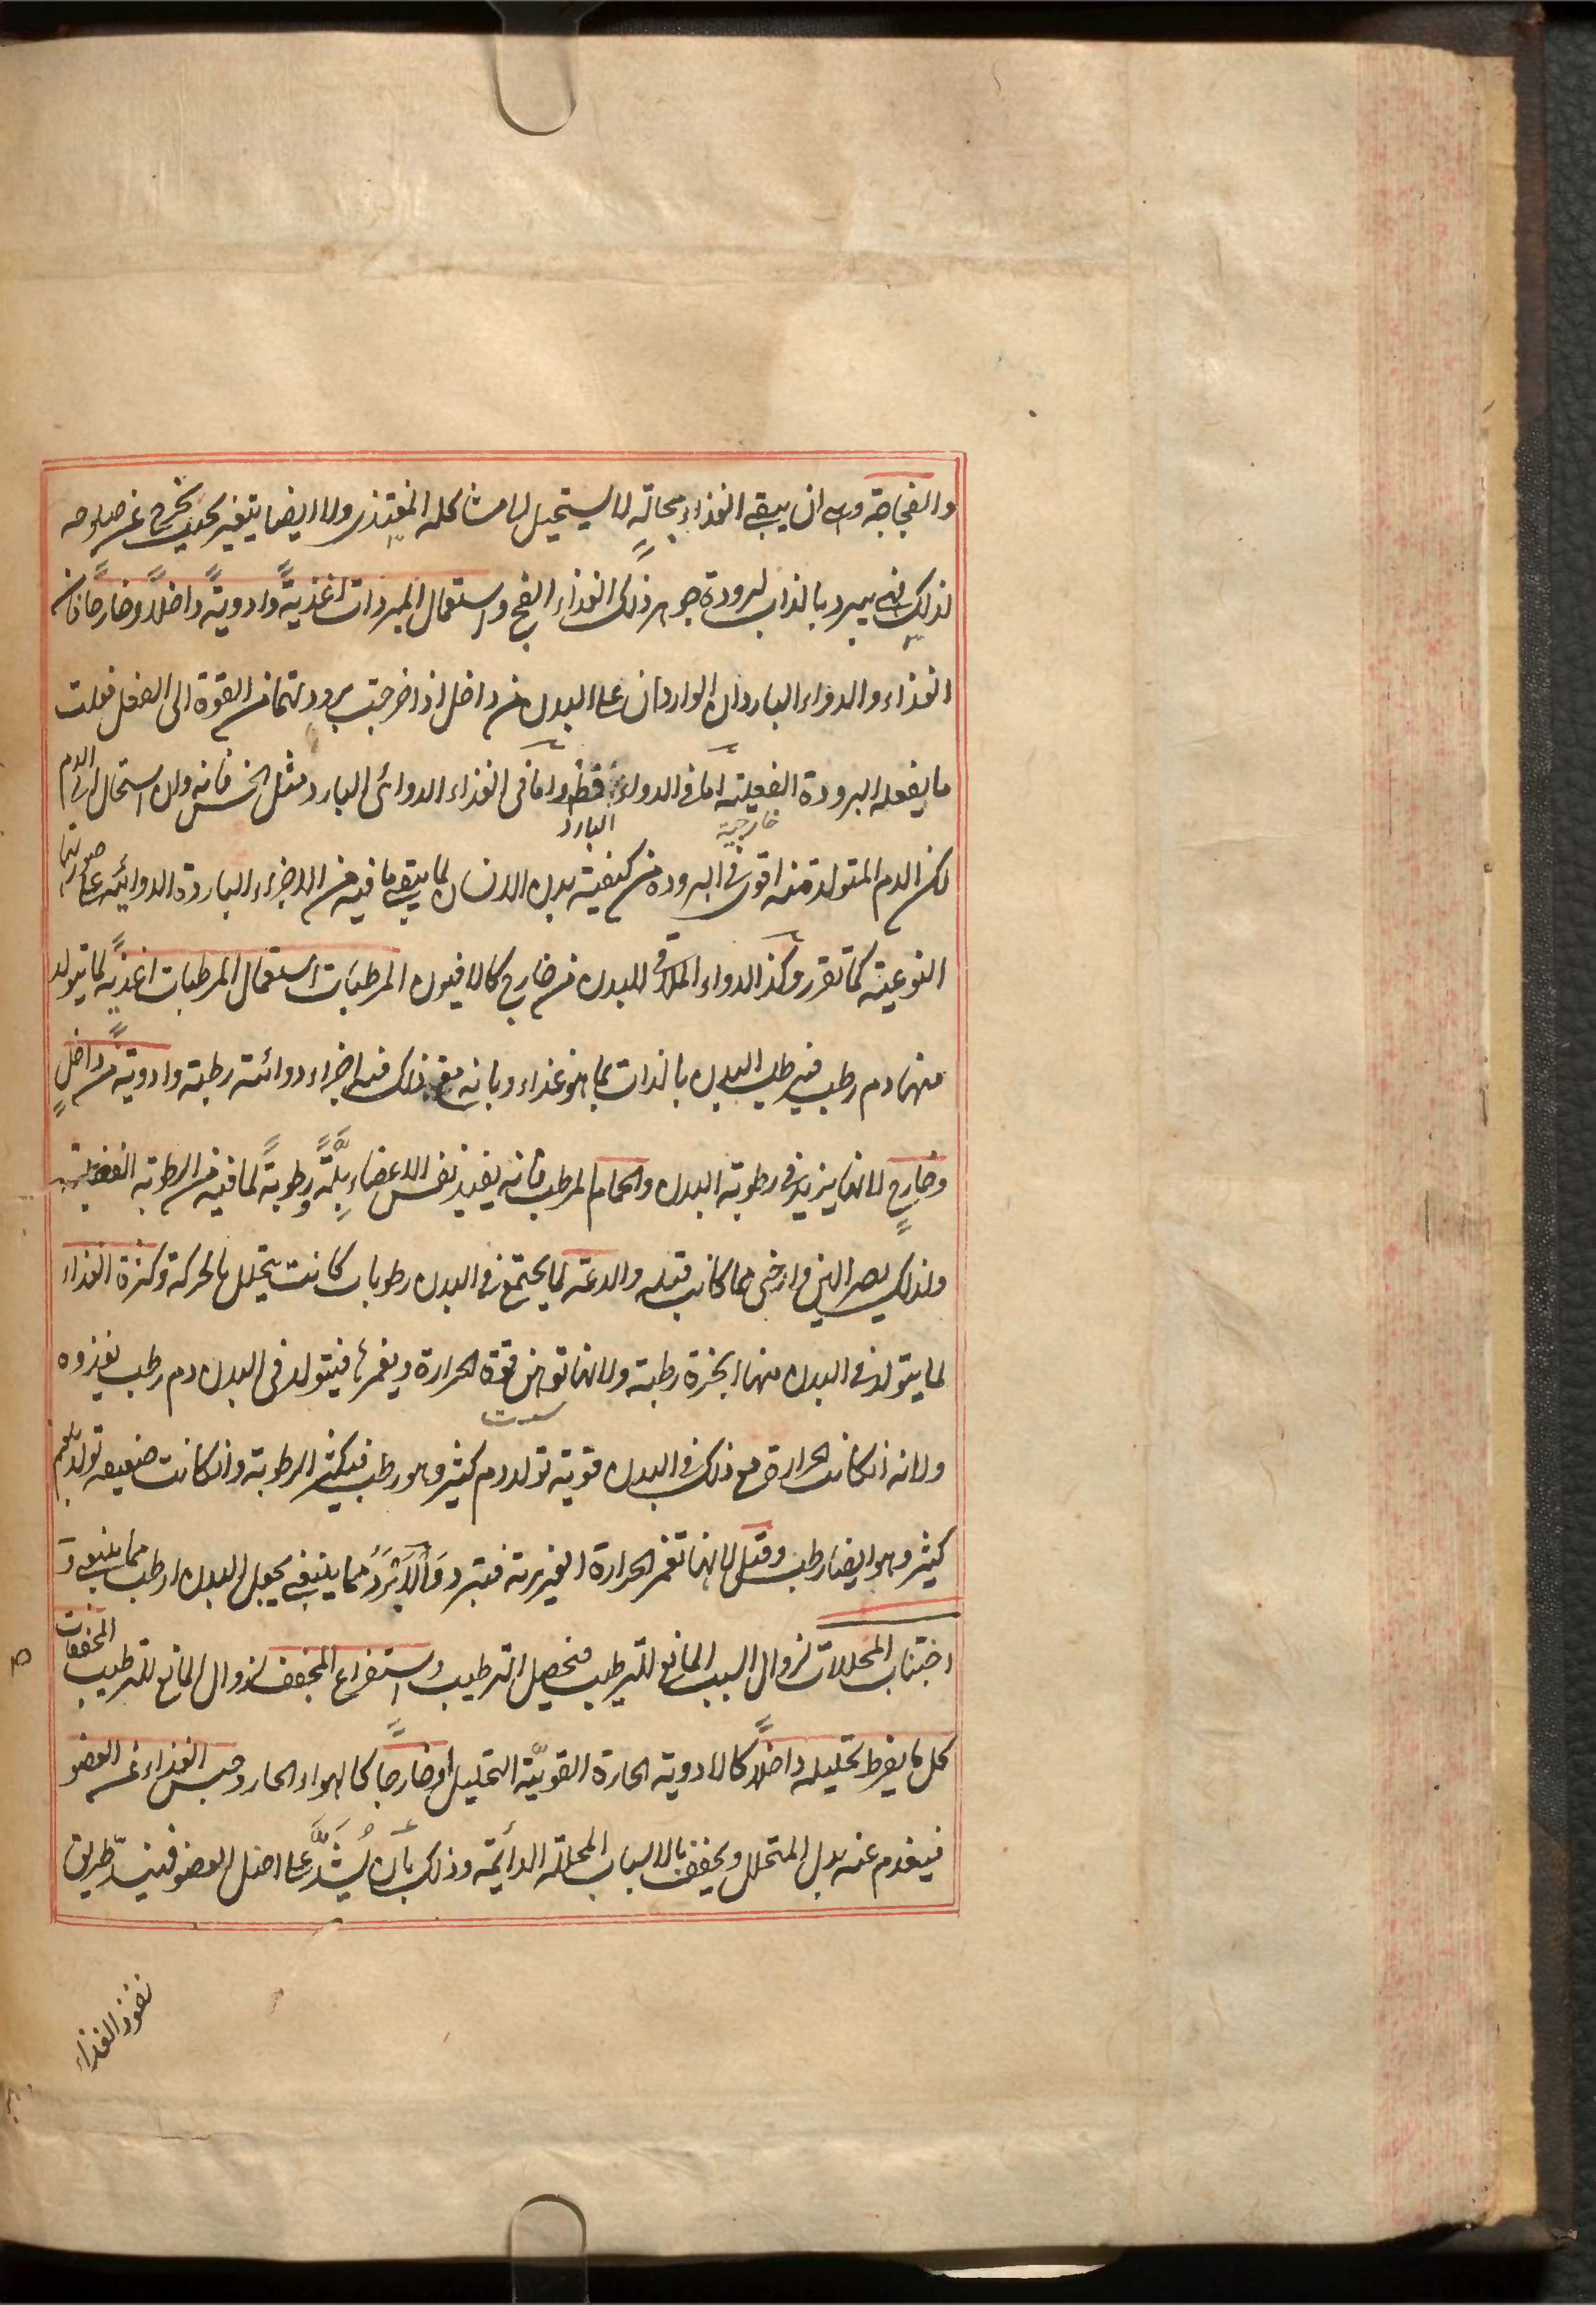 والفجاجة وهى ان يبقى الغذاء بحاله لا يستحيل الى مشاكله المغتذى ولا ايضا يتغير بحيث يخرج عن صلوحه
لذلك فهى يبرد بالذات لبرودة جوهر ذلك الغذاء الفج واستعمال المبردات اغذيةً وادويةً داخلاً وخارجاً فان
الغذاء والدواء الباردان الواردان على البدن من داخل اذا خرجت برودتهما من القوة الى الفعل فعلت
ما يفعله البرودة الفعلية اما فى الدواء فظ واما فى الغذاء الدوائى البارد مثل الخس فانه وان استحال الى الدم
خارجية البارد
لكن الدم المتولد منه اقوى فى البرودة من كيفية بدن الانسان لما يبقى ما فيه من الاجزاء الباردة الدوائية على صورتها
النوعية كما تقرر وكذا الدواء الملاقى للبدن من خارج كالافيون المرطبات استعمال المرطبات اغذيةً لما يتولد
منها دم رطب فيرطب البدن بالذات بما هو غذاء وبانه مع ذلك فيه اجزاء دوائية رطبة وادويةً من داخلٍ
وخارجٍ لانها يزيد فى رطوبة البدن والحمام المرطب فانه يفيد نفس الاعضاء بلّةً ورطوبةً لما فيه من الرطوبة الفعلية
ولذلك يصير الين وارخى مما كانت قبله والدعة لما يجتمع فى البدن رطوبات كانت يتحلل بالحركة وكثرة الغذاء
لما يتولد فى البدن منها ابخرة رطبة ولانها توهن قوة الحرارة ويغمرها فيتولد فى البدن دم رطب يغذوه
ولانه ان كانت الحرارة مع ذلك فى البدن قوية تولد دم كثير وهو رطب فيكثر الرطوبة وان كانت ضعيفة تولد بلغم
كثير وهو ايضا رطب وقيل لانها تغمر الحرارة الغريزية فتبرد والابرد مما ينبغى يجعل البدن ارطب مما ينبغى و
اجتناب المحللات لزوال السبب المانع للترطيب فيحصل الترطيب واستفراغ المجفف لزوال المانع للترطيب المجففات
كل ما يفرط تحليله داخلاً كالادوية الحارة القويّة التحليل او خارجاً كالهواء الحار وحبس الغذاء عن العضو
فيعدم عنه بدل المتحلل ويجفف بالاسباب المحللة الدائمة وذلك بان يُشَدَّ على اصل العضو فينسدّ طريق
نفوذ الغذاء